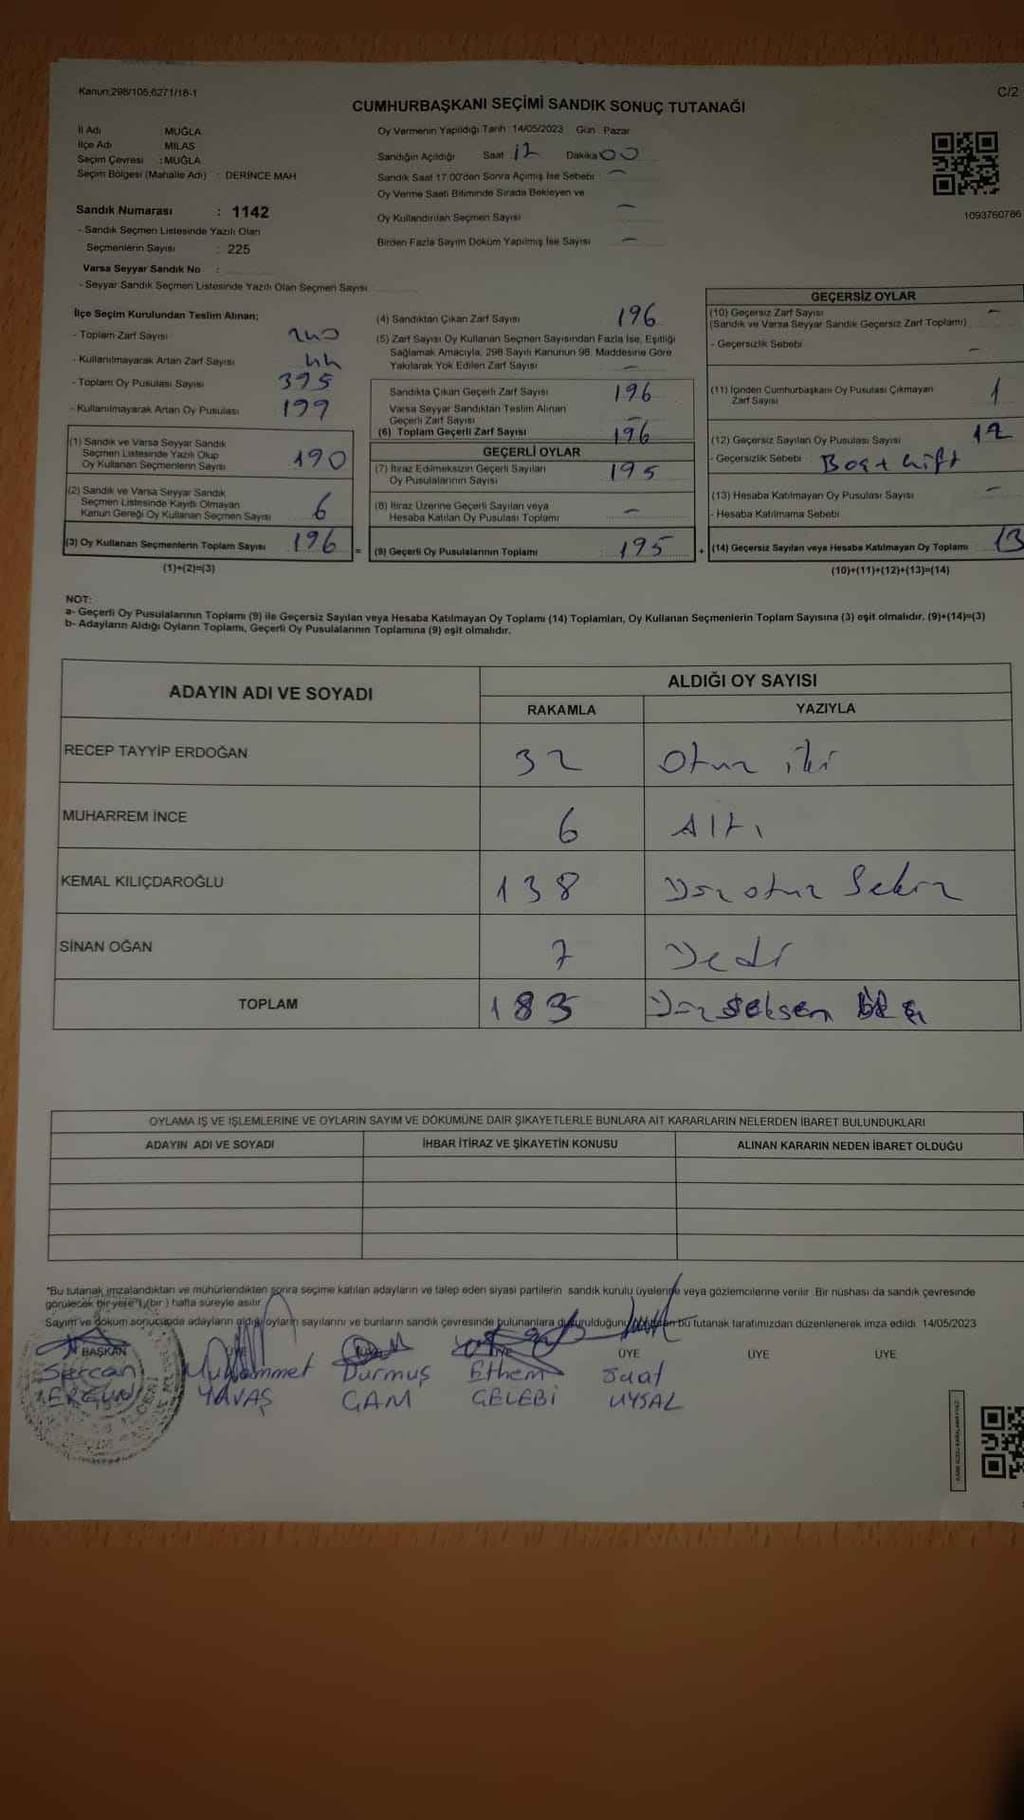 Kanun:298/105,6271/18-1
C/2
CUMHURBAŞKANI SEÇİMİ SANDIK SONUÇ TUTANAĞI
İl Adı MUĞLA
İlçe Adı MİLAS
Seçim Çevresi : MUĞLA
Seçim Bölgesi (Mahalle Adı) : DERİNCE MAH
Sandık Numarası : 1142
- Sandık Seçmen Listesinde Yazılı Olan
Seçmenlerin Sayısı : 225
Varsa Seyyar Sandık No :
- Seyyar Sandık Seçmen Listesinde Yazılı Olan Seçmen Sayısı
Oy Vermenin Yapıldığı Tarih :14/05/2023 Gün Pazar
Sandığın Açıldığı Saat 17 Dakika 00
Sandık Saat 17:00'den Sonra Açılmış İse Sebebi : —
Oy Verme Saati Bitiminde Sırada Bekleyen ve
Oy Kullandırılan Seçmen Sayısı —
Birden Fazla Sayım Döküm Yapılmış İse Sayısı —
1093760786
İlçe Seçim Kurulundan Teslim Alınan;
- Toplam Zarf Sayısı 240
- Kullanılmayarak Artan Zarf Sayısı 44
- Toplam Oy Pusulası Sayısı 395
- Kullanılmayarak Artan Oy Pusulası 199
(1) Sandık ve Varsa Seyyar Sandık
Seçmen Listesinde Yazılı Olup
Oy Kullanan Seçmenlerin Sayısı 190
(2) Sandık ve Varsa Seyyar Sandık
Seçmen Listesinde Kayıtlı Olmayan
Kanun Gereği Oy Kullanan Seçmen Sayısı 6
(3) Oy Kullanan Seçmenlerin Toplam Sayısı 196 =
(1)+(2)=(3)
(4) Sandıktan Çıkan Zarf Sayısı 196
(5) Zarf Sayısı Oy Kullanan Seçmen Sayısından Fazla İse, Eşitliği
Sağlamak Amacıyla, 298 Sayılı Kanunun 98. Maddesine Göre
Yakılarak Yok Edilen Zarf Sayısı —
Sandıkta Çıkan Geçerli Zarf Sayısı 196
Varsa Seyyar Sandıktan Teslim Alınan
Geçerli Zarf Sayısı —
(6) Toplam Geçerli Zarf Sayısı 196
GEÇERLİ OYLAR
(7) İtiraz Edilmeksizin Geçerli Sayılan
Oy Pusulalarının Sayısı 195
(8) İtiraz Üzerine Geçerli Sayılan veya
Hesaba Katılan Oy Pusulası Toplamı —
(9) Geçerli Oy Pusulalarının Toplamı : 195 +
GEÇERSİZ OYLAR
(10) Geçersiz Zarf Sayısı —
(Sandık ve Varsa Seyyar Sandık Geçersiz Zarf Toplamı)
- Geçersizlik Sebebi —
(11) İçinden Cumhurbaşkanı Oy Pusulası Çıkmayan
Zarf Sayısı 1
(12) Geçersiz Sayılan Oy Pusulası Sayısı 12
- Geçersizlik Sebebi : Boş + Çift
(13) Hesaba Katılmayan Oy Pusulası Sayısı —
- Hesaba Katılmama Sebebi
(14) Geçersiz Sayılan veya Hesaba Katılmayan Oy Toplamı 13
(10)+(11)+(12)+(13)=(14)
NOT:
a- Geçerli Oy Pusulalarının Toplamı (9) ile Geçersiz Sayılan veya Hesaba Katılmayan Oy Toplamı (14) Toplamları, Oy Kullanan Seçmenlerin Toplam Sayısına (3) eşit olmalıdır. (9)+(14)=(3)
b- Adayların Aldığı Oyların Toplamı, Geçerli Oy Pusulalarının Toplamına (9) eşit olmalıdır.
ADAYIN ADI VE SOYADI ALDIĞI OY SAYISI
RAKAMLA YAZIYLA
RECEP TAYYİP ERDOĞAN 32 Otuz iki
MUHARREM İNCE 6 Altı
KEMAL KILIÇDAROĞLU 138 Yüz otuz Sekiz
SİNAN OĞAN 7 Yedi
TOPLAM 183 Yüz seksen
OYLAMA İŞ VE İŞLEMLERİNE VE OYLARIN SAYIM VE DÖKÜMÜNE DAİR ŞİKAYETLERLE BUNLARA AİT KARARLARIN NELERDEN İBARET BULUNDUKLARI
ADAYIN ADI VE SOYADI İHBAR İTİRAZ VE ŞİKAYETİN KONUSU ALINAN KARARIN NEDEN İBARET OLDUĞU
*Bu tutanak imzalandıktan ve mühürlendikten sonra seçime katılan adayların ve talep eden siyasi partilerin sandık kurulu üyelerine veya gözlemcilerine verilir. Bir nüshası da sandık çevresinde
görülecek bir yere 1 (bir ) hafta süreyle asılır.
Sayım ve döküm sonucunda adayların aldığı oyların sayılarını ve bunların sandık çevresinde bulunanlara duyurulduğunu bu tutanak tarafımızdan düzenlenerek imza edildi. 14/05/2023
BAŞKAN ÜYE ÜYE ÜYE
Sercan Muhammet Durmuş Ethem Suat
ERGÜN YAVAŞ ÇAM ÇELEBİ UYSAL